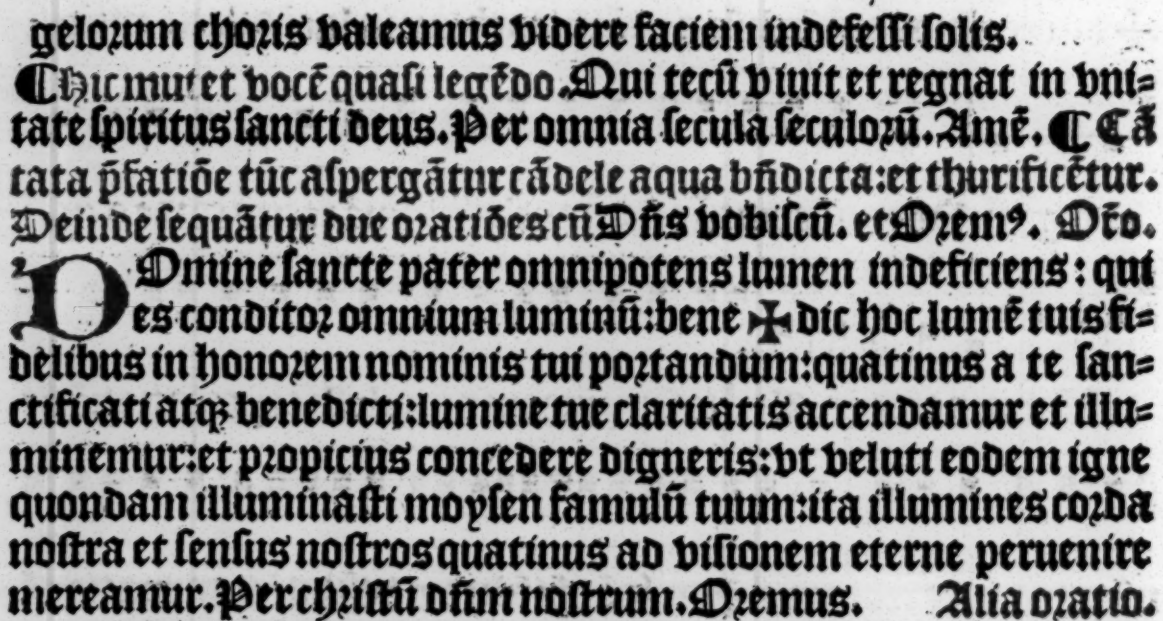 gelorum choris valeamus videre faciem indefessi solis.
¶ Hic mutet vocē quasi legēdo. Qui tecū viuit et regnat in vni=
tate spiritus sancti deus. Per omnia secula seculorū. Amē. ¶ Cā
tata p̄fatiōe tūc aspergātur cādele aqua bn̄dicta: et thurificētur.
Deinde sequātur due oratiōes cū Dn̄s vobiscū. et Oremꝰ. Or̄o.
DOmine sancte pater omnipotens lumen indeficiens: qui
es conditor omnium luminū: bene ✠ dic hoc lumē tuis fi=
delibus in honorem nominis tui portandum: quatinus a te san=
ctificati atqꝫ benedicti: lumine tue claritatis accendamur et illu=
minemur: et propicius concedere digneris: vt veluti eodem igne
quondam illuminasti moysen famulū tuum: ita illumines corda
nostra et sensus nostros quatinus ad visionem eterne peruenire
mereamur. Per christū dn̄m nostrum. Oremus. Alia oratio.